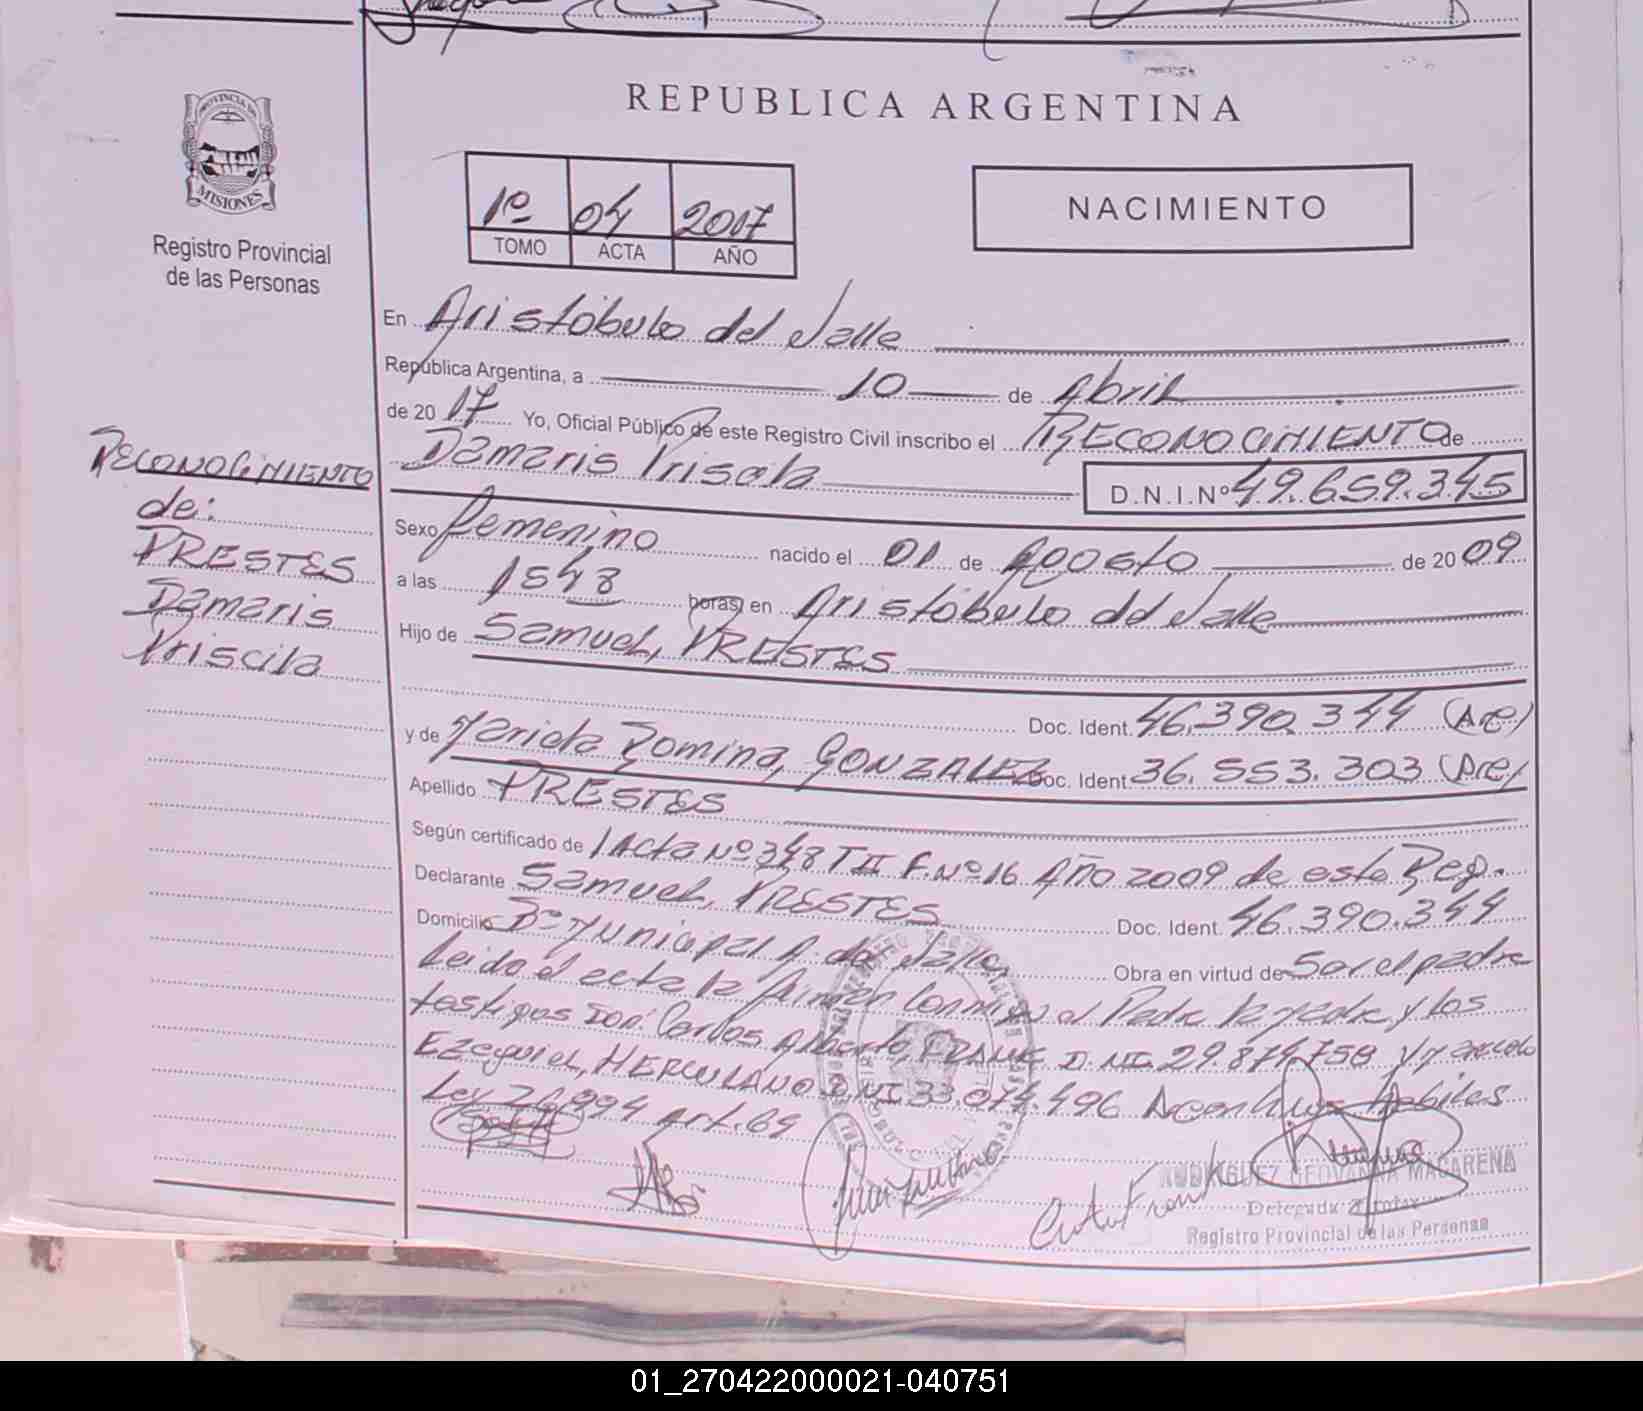 REPUBLICA ARGENTINA
PROVINCIA DE
MISIONES
Registro Provincial
de las Personas
1º 04 2017
TOMO ACTA AÑO
NACIMIENTO
En Aristóbulo del Valle
República Argentina, a 10 de Abril
de 2017 Yo, Oficial Público de este Registro Civil inscribo el RECONOCIMIENTO de
Damaris Prisila D.N.I.Nº 49.659.345
RECONOCIMIENTO
de:
PRESTES
Damaris
Priscila
Sexo femenino nacido el 01 de Agosto de 2009
a las 1548 horas, en Aristóbulo del Valle
Hijo de Samuel, PRESTES
Doc. Ident. 46.390.344 (Arg)
y de Mariela Romina, GONZALEZ Doc. Ident. 36.553.303 (Arg)
Apellido PRESTES
Según certificado de Acta Nº 348 T II F. Nº 16 Año 2009 de este Reg.
Declarante Samuel, PRESTES Doc. Ident. 46.390.344
Domicilio Bº Municipal A. del Valle Obra en virtud de Ser el padre
Leida el acta la firman conmigo el Padre la madre y los
testigos Don: Carlos Alberto, FRANK D.NI. 29.874.758 y Marcelo
Ezequiel, HERCULANO D.NI. 33.074.496 Acentuos Habiles
Ley 26.994 art. 69
RODRIGUEZ GEOVANNA MACARENA
Delegada Titular
Registro Provincial de las Personas
01_270422000021-040751